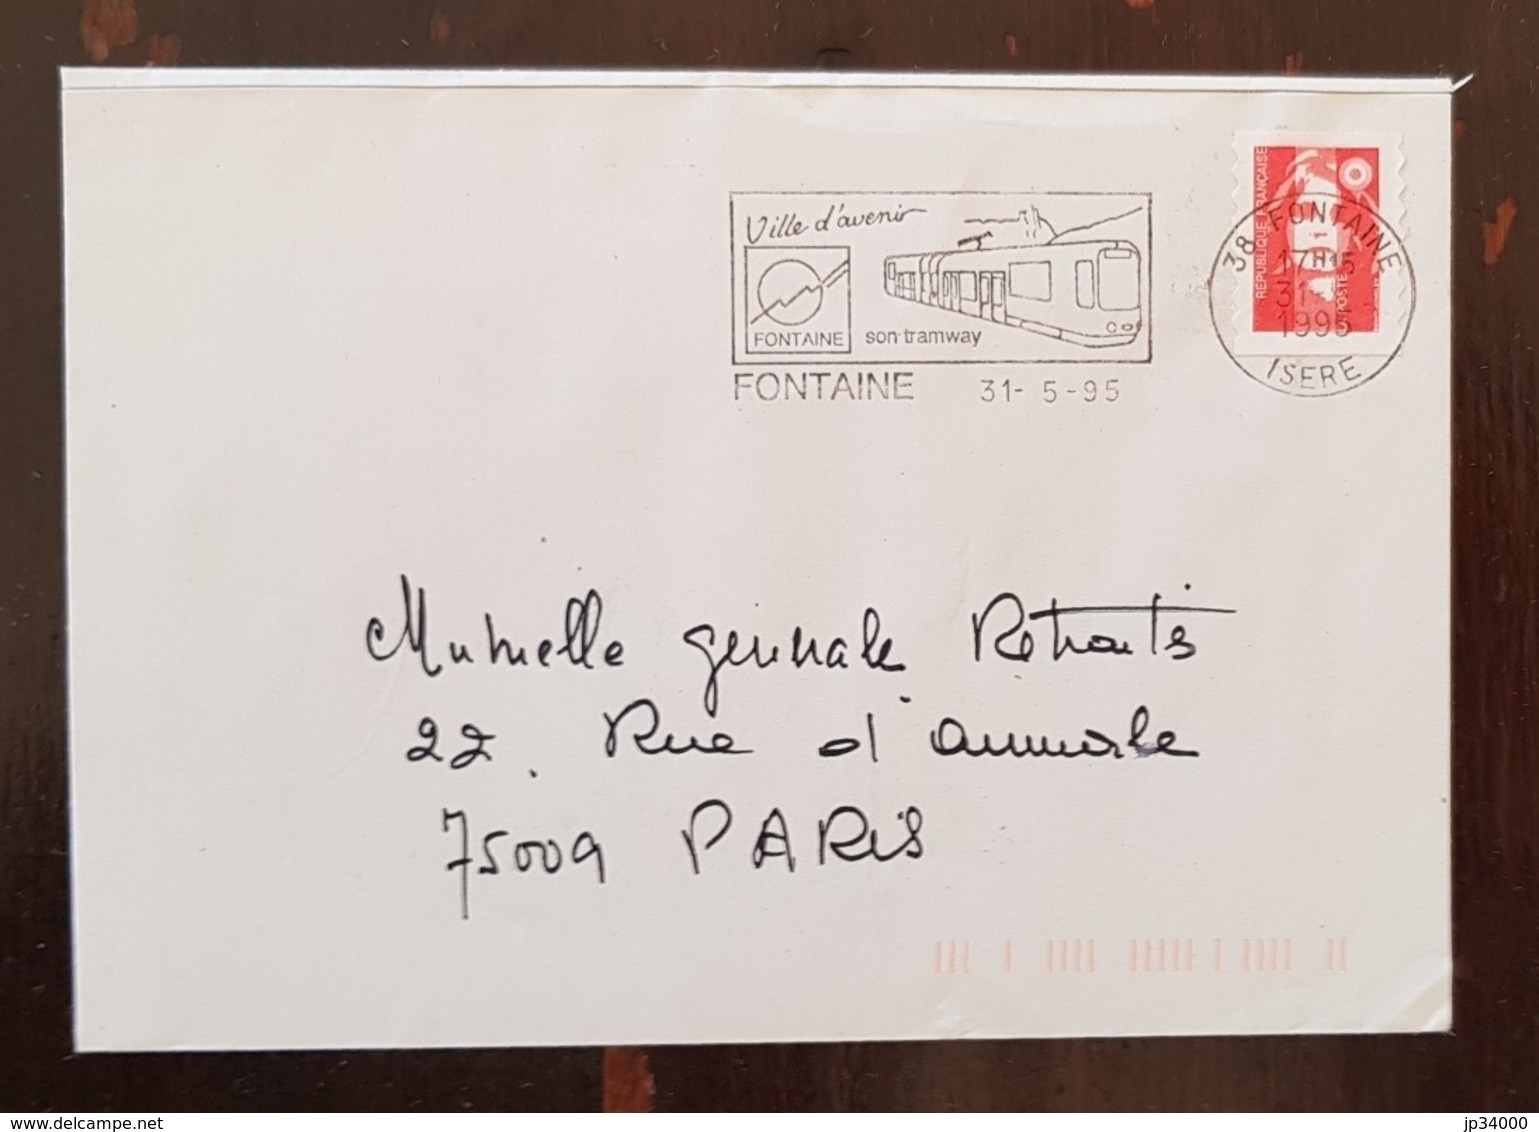 Ville d'avenir
FONTAINE
son tramway
FONTAINE 31- 5 -95
RÉPUBLIQUE FRANÇAISE
LA POSTE
38 FONTAINE
17H15
31-5
1995
ISERE
Mutuelle générale Retraités
22. Rue d'aumale
75009 PARIS
jp34000